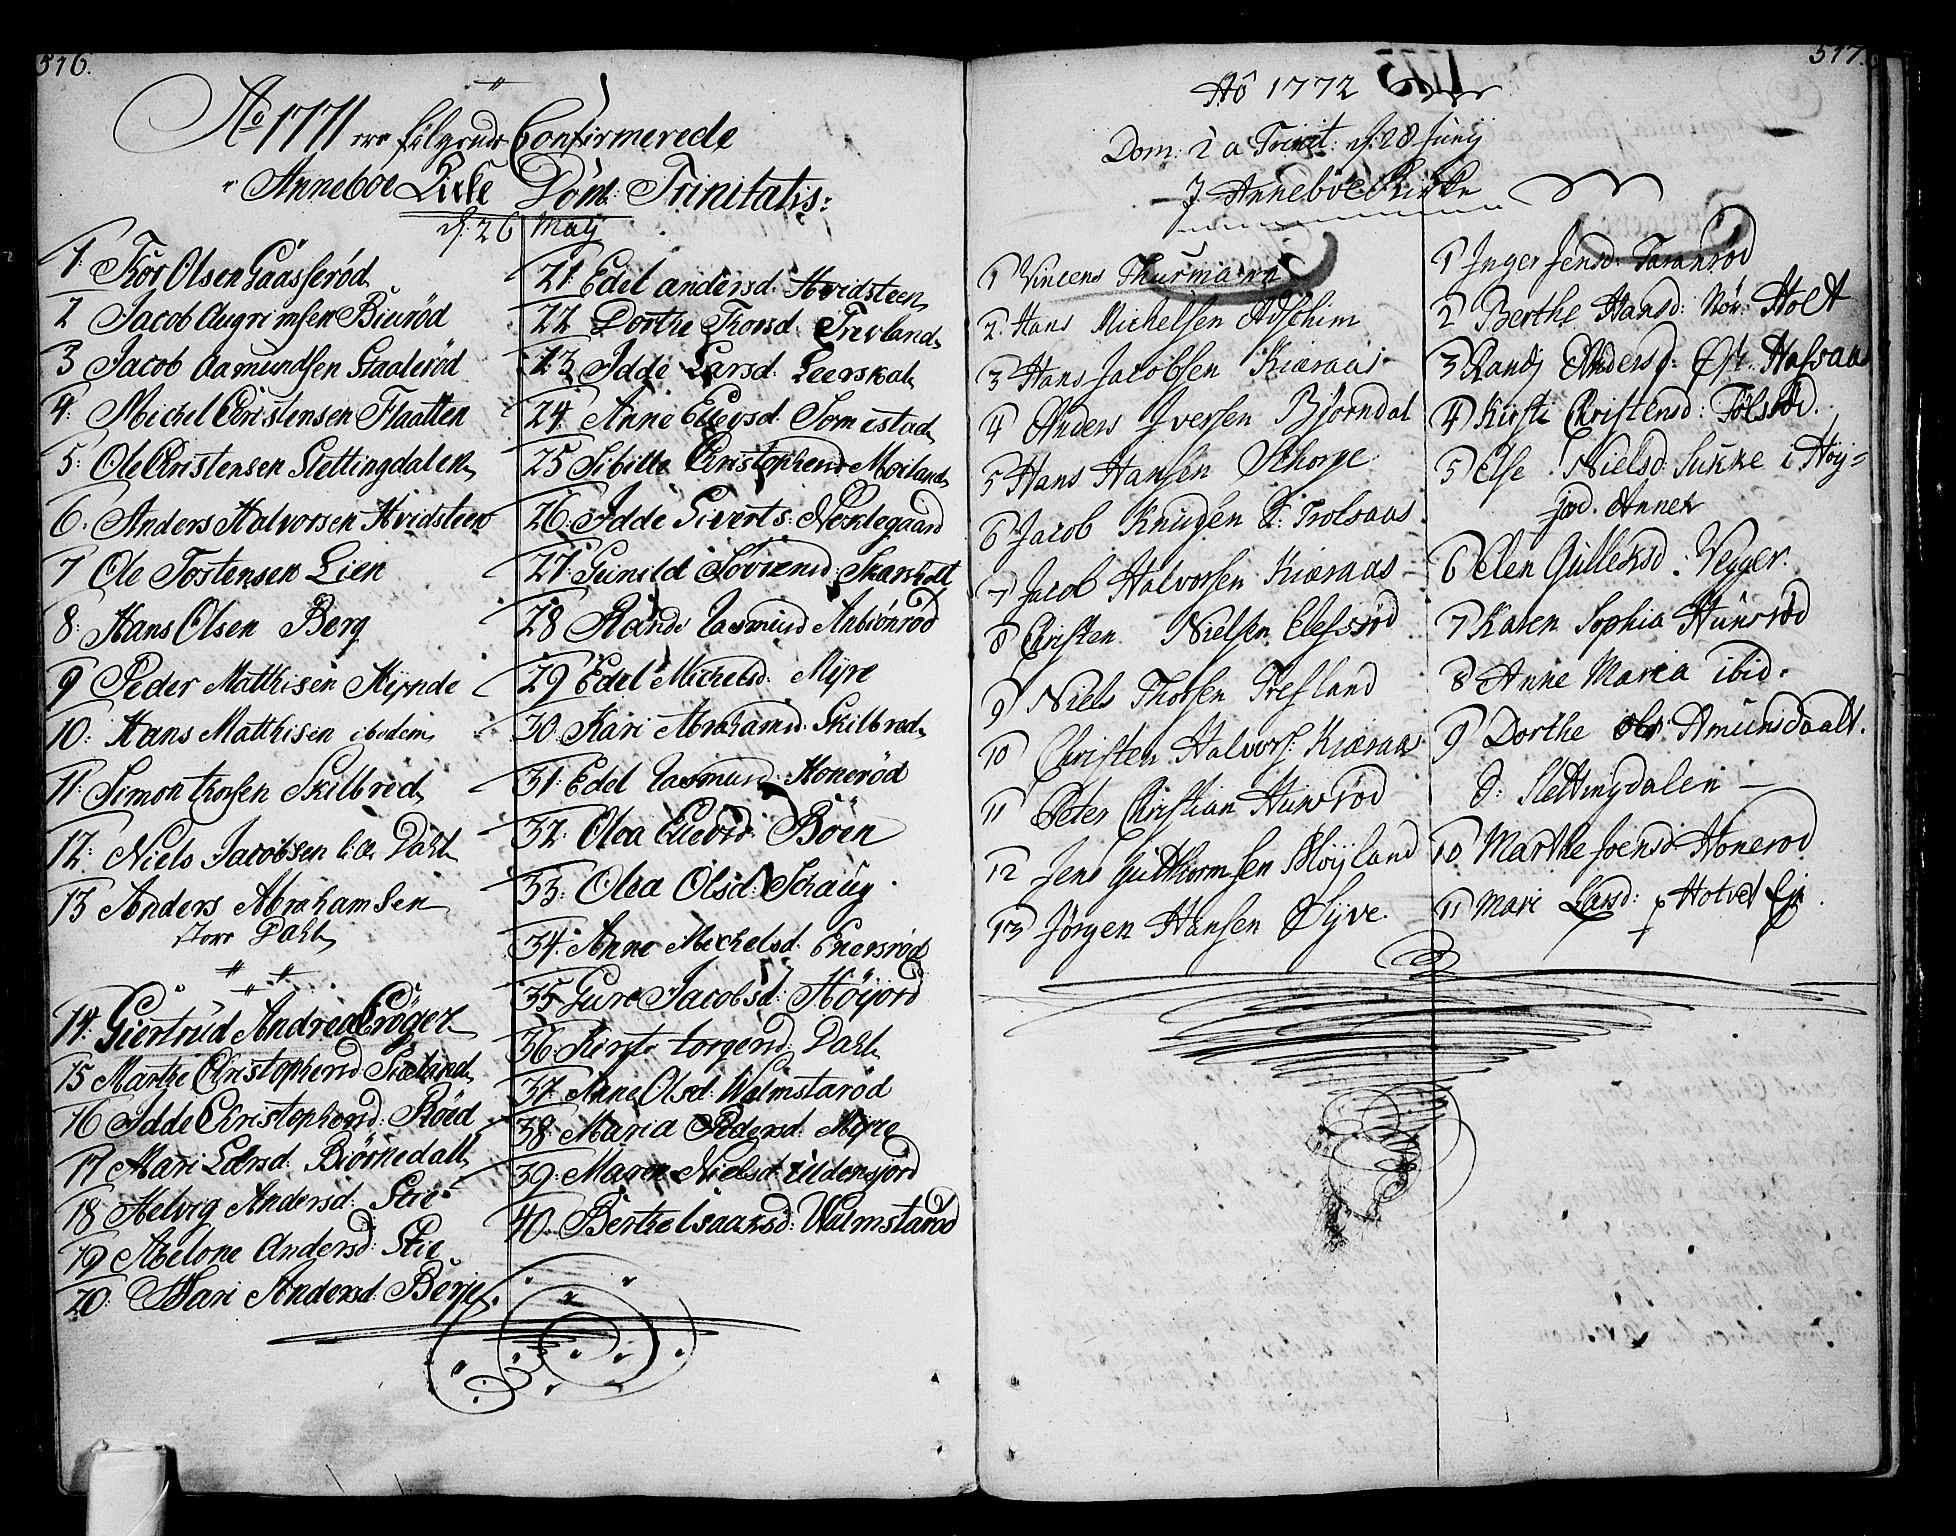 516.
Ao 1771 ere følgende Confirmerede
Anneboe Kirke Dom: Trinitatis:
d. 26 Maÿ
1. Thor Olsen Gaasserød
2 Jacob Augrimsen Biurød
3 Jacob Aamundsen Staalerød
4. Michel Christensen Flaatten
5: Ole Christensen Slettingdalen
6. Anders Halvorsen Hvidsteen
7 Ole Tostensen Lien
8: Hans Olsen Berg
9 Peder Matthisen Hÿnde
10: Hans Matthisen ibidem
11: Simon Thorsen Skilbred
12: Niels Jacobsen Dahl
13 Anders Abrahamsen
store Dahl
14: Giertrud Andrea Crøger
15 Marthe Christophersd:
16 Idde Christophersd: Røed
17 Mari Larsd: Biørnedall
18 Helvig Andersd: Stie
19 Abelone Andersd: Stie
20: Kari Andersd: Berje
21. Edel Andersd: Hvidsteen
22 Dorthe Thorsd: Trevland
23 Idde Larsd: Leerskal
24. Anne Ellevsd. Somestad
25 Sibille Christophersd Moiland
26: Idde Siverts: Necklegaard
27: Gunild Søvrensd: Skarsholt
28 Rande Rasmusd Anbiønrød
29 Edel Michelsd: Mÿre
30. Kari Abrahamsd: Skilbred
31: Edel Rasmusd: Honerød
32: Olea Ellevsd: Bøen
33: Olea Olsd: Schaug
34: Anne Michelsd: Enersrød
35 Gure Jacobsd: Høÿjord
36: Kirsti Torgersd: Dahl
37: Anne Olsd: Walmstarød
38: Maria Pedersd: Mÿre
39: Maren Nielsd: Vildensjord
40. Berthe Isaaksd: Walmstarød
517.
Aō 1772
Dom: 2 a Trinit: d. 28 Junij
J Anneböe Kirke
1 Vincens Thurmann
2. Hans Michelsen Adschim
3 Hans Jacobsen Kiæraas
4 Anders Iversen Bjørndal
5 Hans Hansen Schorge
6 Jacob Knudsen L: Trolsaas
7 Jacob Halvorsen Kiæraas
8 Christen Nielsen Elefsrød
9 Niels Thorsen Trefland
10 Christen Halvors: Kiæraas
11 Peter Christian Hunsrød
12 Jens Gutthormsen Møÿland
13 Jørgen Hansen
1 Inger Jensd: Taranrød
2 Berthe Hansd: Nør: Holt
3 Randj Andersd: Øst. Hafsaas
4 Kirsti Christensd: Følsrød.
5 Else Nielsd: Sukke i Høÿ=
jord. Annex
6 Elen Gulleksd: Vegger.
7 Karen Sophia Hunsrød
8 Anne Maria ibid.
9 Dorthe Amunsdaatt.
Slettingdalen
10 Marthe Joensd Honerød
11 Mari Larsd: Holvet Ej.